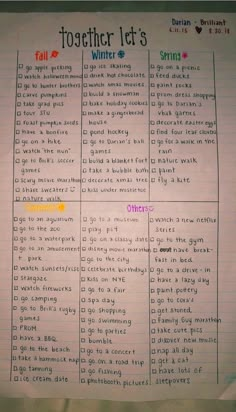 together let's
Fall
□ go apple picking
□ watch halloween movies
□ go to hunter brothers
□ carve pumpkins
□ take grad pics
□ tour SFU
□ roast pumpkin seeds
□ have a bonfire
□ go on a hike
□ watch "the nun"
□ go to Brik's soccer
games
□ scary movie marathon
□ share sweaters
□ nature walk
Winter
□ go ice skating
□ drink hot chocolate
□ watch xmas movies
□ build a snowman
□ make holiday cookies
□ make a gingerbread
house
□ pond hockey
□ go to Darian's ball
games
□ build a blanket fort
□ take a bubble bath
□ decorate xmas tree
□ kiss under mistletoe
Spring
□ go on a picnic
□ feed ducks
□ paint rocks
□ prom dress shopping
□ go to Darian's
vball games
□ decorate easter eggs
□ find four leaf clovers
□ go for a walk in the
rain
□ nature walk
□ paint
□ fly a kite
□ go to an aquarium
□ go to the zoo
□ go to a waterpark
□ go to an amusement
park
□ watch sunsets/rises
□ stargaze
□ watch fireworks
□ go camping
□ go to Brik's rugby
games
□ PROM
□ have a BBQ
□ go to the beach
□ take a hammock nap
□ go tanning
□ ice cream date
Others
□ go to a museum
□ play pit
□ go on a classy date
□ disney movie marathon
□ go to the city
□ celebrate birthdays
□ kiss on NYE
□ go to a fair
□ spa day
□ go shopping
□ go swimming
□ go to parties
□ bumble
□ go to a concert
□ go on a road trip
□ go out to eat
□ photobooth pictures
□ watch a new netflix
series
□ go to the gym
□ have break-
fast in bed
□ go to a drive-in
□ have a lazy day
□ paint pottery
□ go to
□ get stoned
□ Family Guy marathon
□ take cute pics
□ discover new music
□ nap all day
□ get a cat
□ have lots of
sleepovers